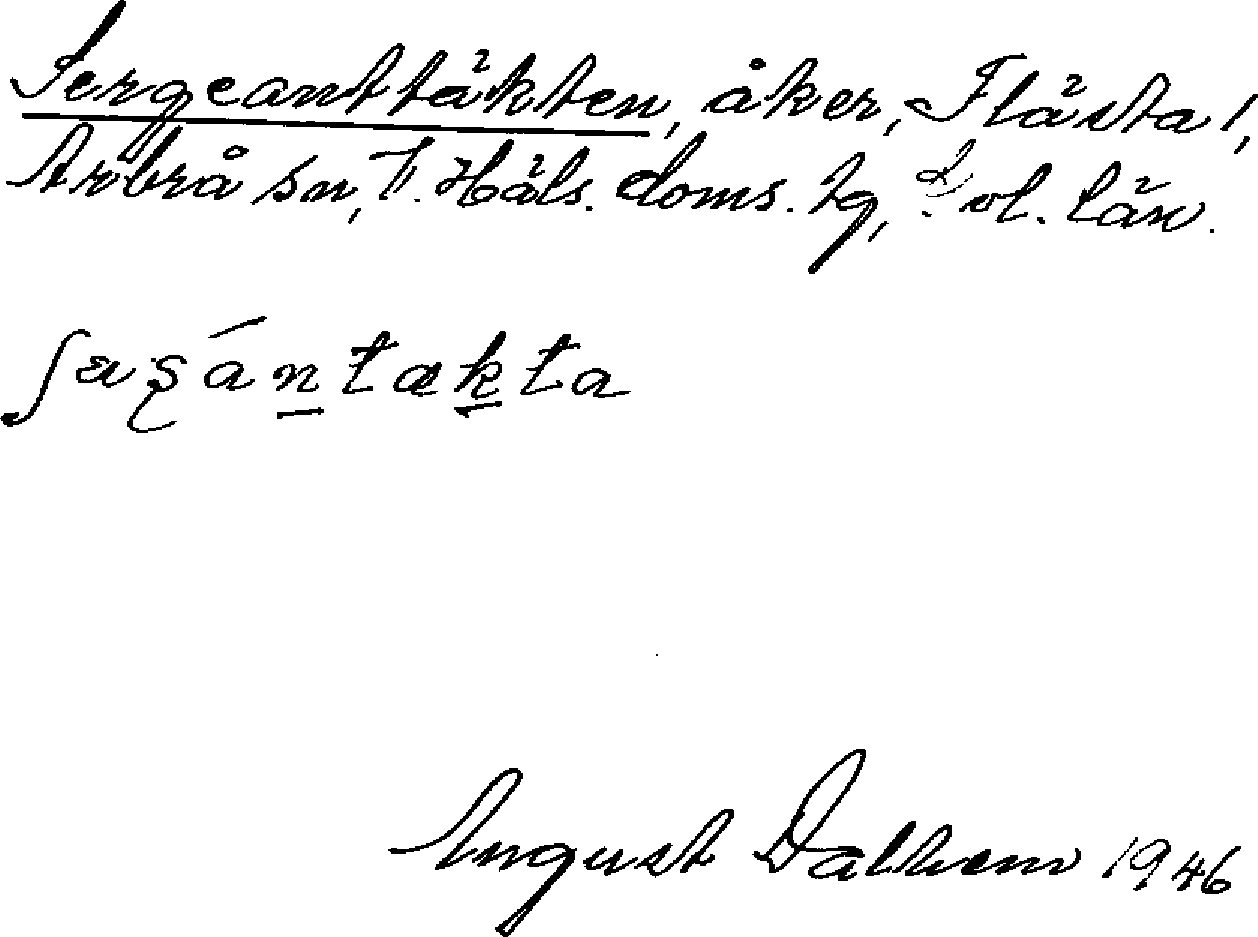 Sergeanttäkten, åker, Flästa 1,
Arbrå sn, V. Häls. doms. hg, Gvl. län.
ʃaʂántækta
August Dalhem 1946